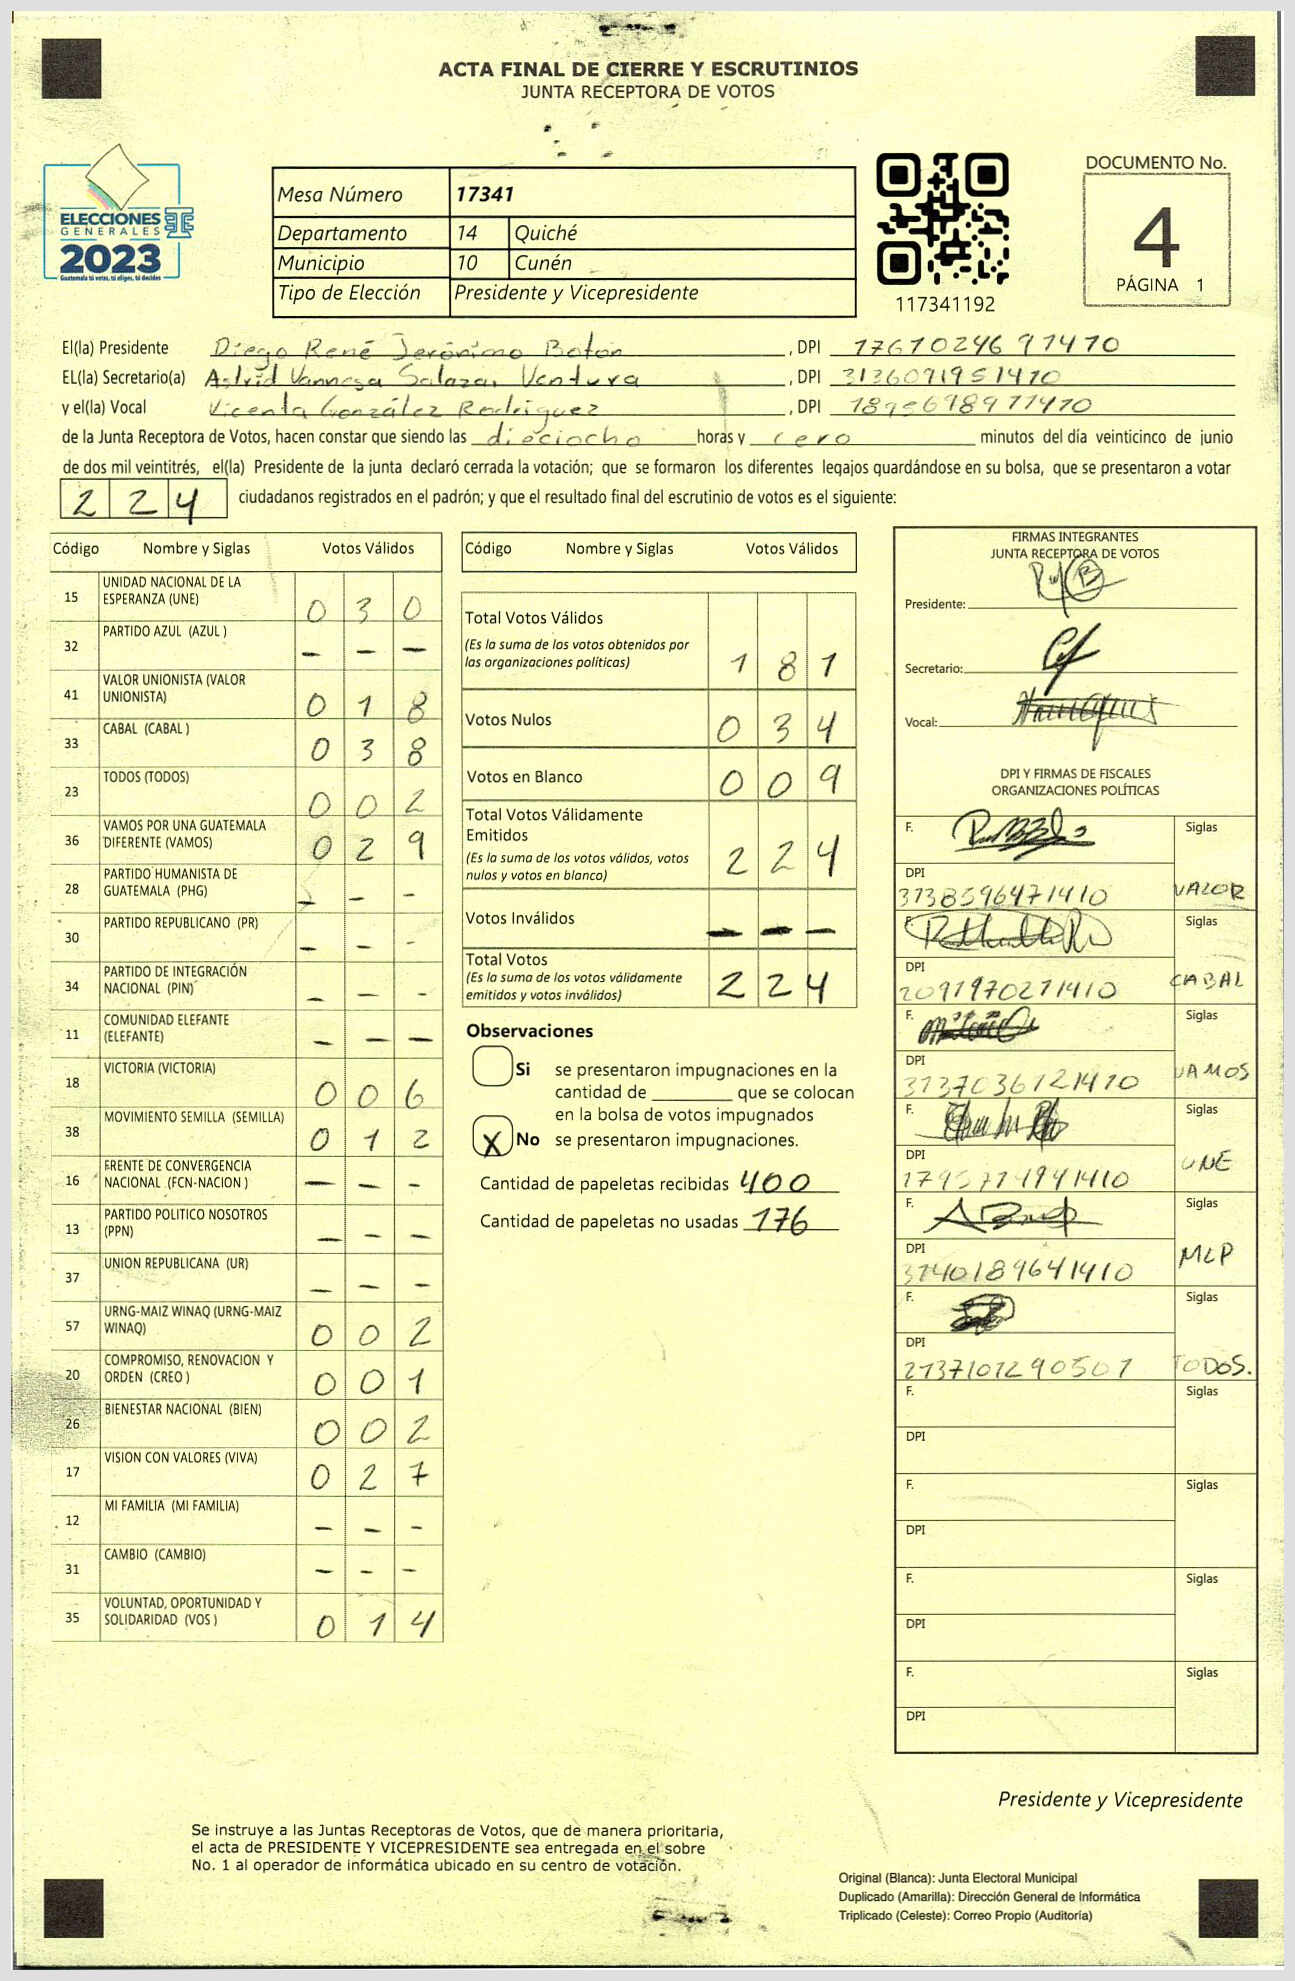 ACTA FINAL DE CIERRE Y ESCRUTINIOS
JUNTA RECEPTORA DE VOTOS
ELECCIONES
GENERALES
2023
Guatemala tú votas, tú eliges, tú decides
Mesa Número 17341
Departamento 14 Quiché
Municipio 10 Cunén
Tipo de Elección Presidente y Vicepresidente
117341192
DOCUMENTO No.
4
PÁGINA 1
El(la) Presidente Diego René Jerónimo Botón , DPI 1761024691410
EL(la) Secretario(a) Astrid Vannesa Salazar Ventura , DPI 3136091951410
y el(la) Vocal Vicenta González Rodríguez , DPI 1895698911410
de la Junta Receptora de Votos, hacen constar que siendo las dieciocho horas y cero minutos del día veinticinco de junio
de dos mil veintitrés, el(la) Presidente de la junta declaró cerrada la votación; que se formaron los diferentes legajos guardándose en su bolsa, que se presentaron a votar
224 ciudadanos registrados en el padrón; y que el resultado final del escrutinio de votos es el siguiente:
Código Nombre y Siglas Votos Válidos
15 UNIDAD NACIONAL DE LA ESPERANZA (UNE) 0 3 0
32 PARTIDO AZUL (AZUL ) – – –
41 VALOR UNIONISTA (VALOR UNIONISTA) 0 1 8
33 CABAL (CABAL ) 0 3 8
23 TODOS (TODOS) 0 0 2
36 VAMOS POR UNA GUATEMALA DIFERENTE (VAMOS) 0 2 9
28 PARTIDO HUMANISTA DE GUATEMALA (PHG) – – –
30 PARTIDO REPUBLICANO (PR) – – –
34 PARTIDO DE INTEGRACIÓN NACIONAL (PIN) – – –
11 COMUNIDAD ELEFANTE (ELEFANTE) – – –
18 VICTORIA (VICTORIA) 0 0 6
38 MOVIMIENTO SEMILLA (SEMILLA) 0 1 2
16 FRENTE DE CONVERGENCIA NACIONAL (FCN-NACION ) – – –
13 PARTIDO POLITICO NOSOTROS (PPN) – – –
37 UNION REPUBLICANA (UR) – – –
57 URNG-MAIZ WINAQ (URNG-MAIZ WINAQ) 0 0 2
20 COMPROMISO, RENOVACION Y ORDEN (CREO ) 0 0 1
26 BIENESTAR NACIONAL (BIEN) 0 0 2
17 VISION CON VALORES (VIVA) 0 2 7
12 MI FAMILIA (MI FAMILIA) – – –
31 CAMBIO (CAMBIO) – – –
35 VOLUNTAD, OPORTUNIDAD Y SOLIDARIDAD (VOS ) 0 1 4
Código Nombre y Siglas Votos Válidos
Total Votos Válidos
(Es la suma de los votos obtenidos por las organizaciones políticas) 1 8 1
Votos Nulos 0 3 4
Votos en Blanco 0 0 9
Total Votos Válidamente Emitidos
(Es la suma de los votos válidos, votos nulos y votos en blanco) 2 2 4
Votos Inválidos – – –
Total Votos
(Es la suma de los votos válidamente emitidos y votos inválidos) 2 2 4
Observaciones
Si se presentaron impugnaciones en la
cantidad de ________ que se colocan
en la bolsa de votos impugnados
X No se presentaron impugnaciones.
Cantidad de papeletas recibidas 400
Cantidad de papeletas no usadas 176
FIRMAS INTEGRANTES
JUNTA RECEPTORA DE VOTOS
Presidente:
Secretario:
Vocal:
DPI Y FIRMAS DE FISCALES
ORGANIZACIONES POLÍTICAS
F. Siglas
DPI 3738596471410 VALOR
F. Siglas
DPI 2091970271410 CABAL
F. Siglas
DPI 3137036121410 VAMOS
F. Siglas
DPI UNE
F. Siglas
DPI 3140189641410 MLP
F. Siglas
DPI 2137101290501 TODOS.
F. Siglas
DPI
F. Siglas
DPI
F. Siglas
DPI
F. Siglas
DPI
Presidente y Vicepresidente
Se instruye a las Juntas Receptoras de Votos, que de manera prioritaria,
el acta de PRESIDENTE Y VICEPRESIDENTE sea entregada en el sobre
No. 1 al operador de informática ubicado en su centro de votación.
Original (Blanca): Junta Electoral Municipal
Duplicado (Amarilla): Dirección General de Informática
Triplicado (Celeste): Correo Propio (Auditoría)